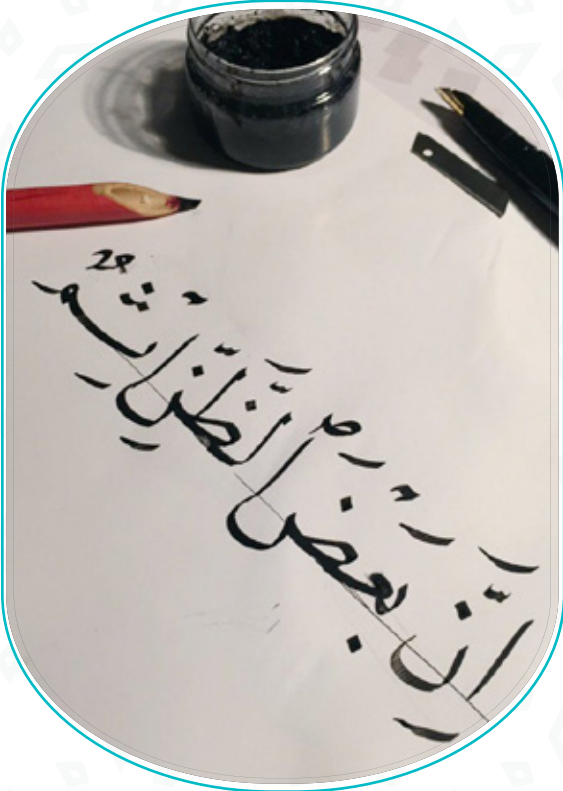 إِنَّ بَعْضَ ٱلظَّنِّ إِثْمٌ